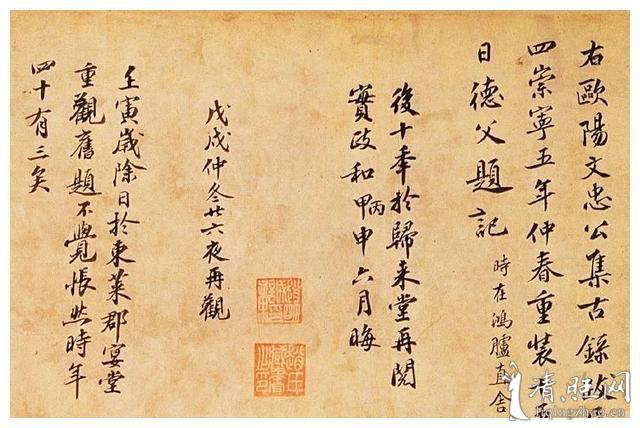 右歐陽文忠公集古錄跋
四崇寧五年仲春重裝
日德父題記
時在鴻臚直舍
後十年於歸来堂再閱
實政和甲丙申六月晦
戊戌仲冬廿六夜再觀
壬寅歲除日於東萊郡宴堂
重觀舊題不覺悵然時年
四十有三矣